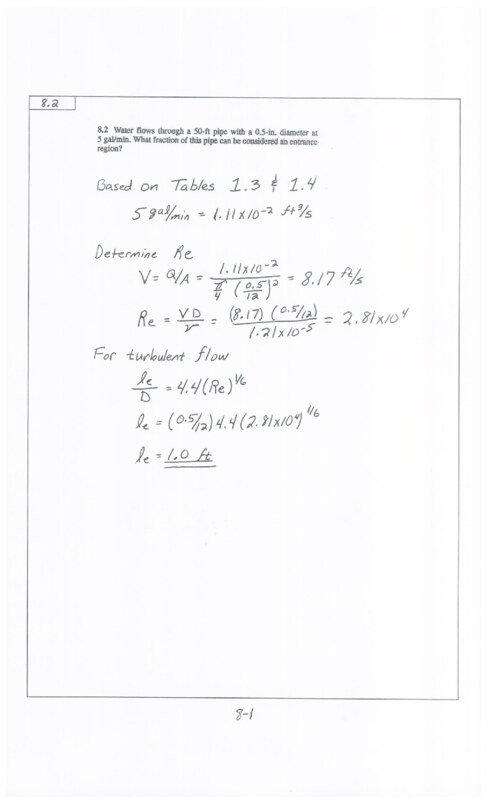 8.2
8.2 Water flows through a 50-ft pipe with a 0.5-in. diameter at
5 gal/min. What fraction of this pipe can be considered an entrance
region?
Based on Tables 1.3 & 1.4
5 gal/min = 1.11x10⁻² ft³/s
Determine Re
V = Q/A = 1.11x10⁻² / (π/4 (0.5/12)²) = 8.17 ft/s
Re = VD/ν = (8.17)(0.5/12) / 1.21x10⁻⁵ = 2.81x10⁴
For turbulent flow
le/D = 4.4(Re)^1/6
le = (0.5/12)4.4(2.81x10⁴)^1/6
le = 1.0 ft
8-1